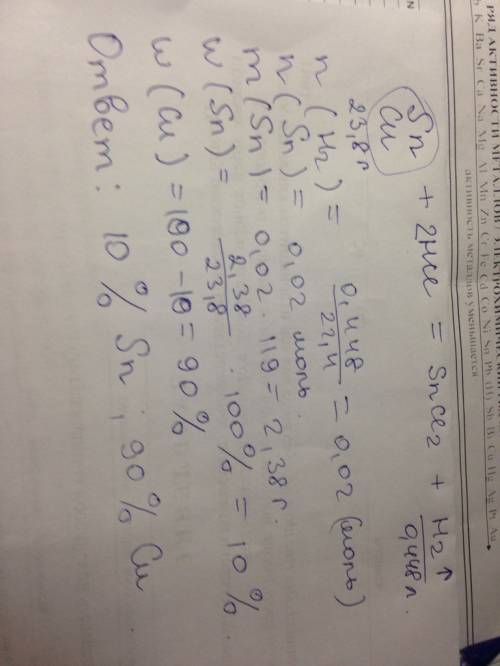 РЯД АКТИВНОСТИ МЕТАЛЛОВ
K Ba Sr Ca Na Mg Al Mn Zn Cr Fe Cd Co Ni Sn Pb (H) Sb Bi Cu Hg Ag Pt Au
активность металлов уменьшается
Sn
Cu + 2HCl = SnCl2 + H2↑
23,8 г 0,448 л.
n (H2) = 0,448 / 22,4 = 0,02 (моль)
n (Sn) = 0,02 моль.
m (Sn) = 0,02 · 119 = 2,38 г.
w (Sn) = 2,38 / 23,8 · 100% = 10%.
w (Cu) = 100 - 10 = 90%
Ответ: 10% Sn ; 90% Cu